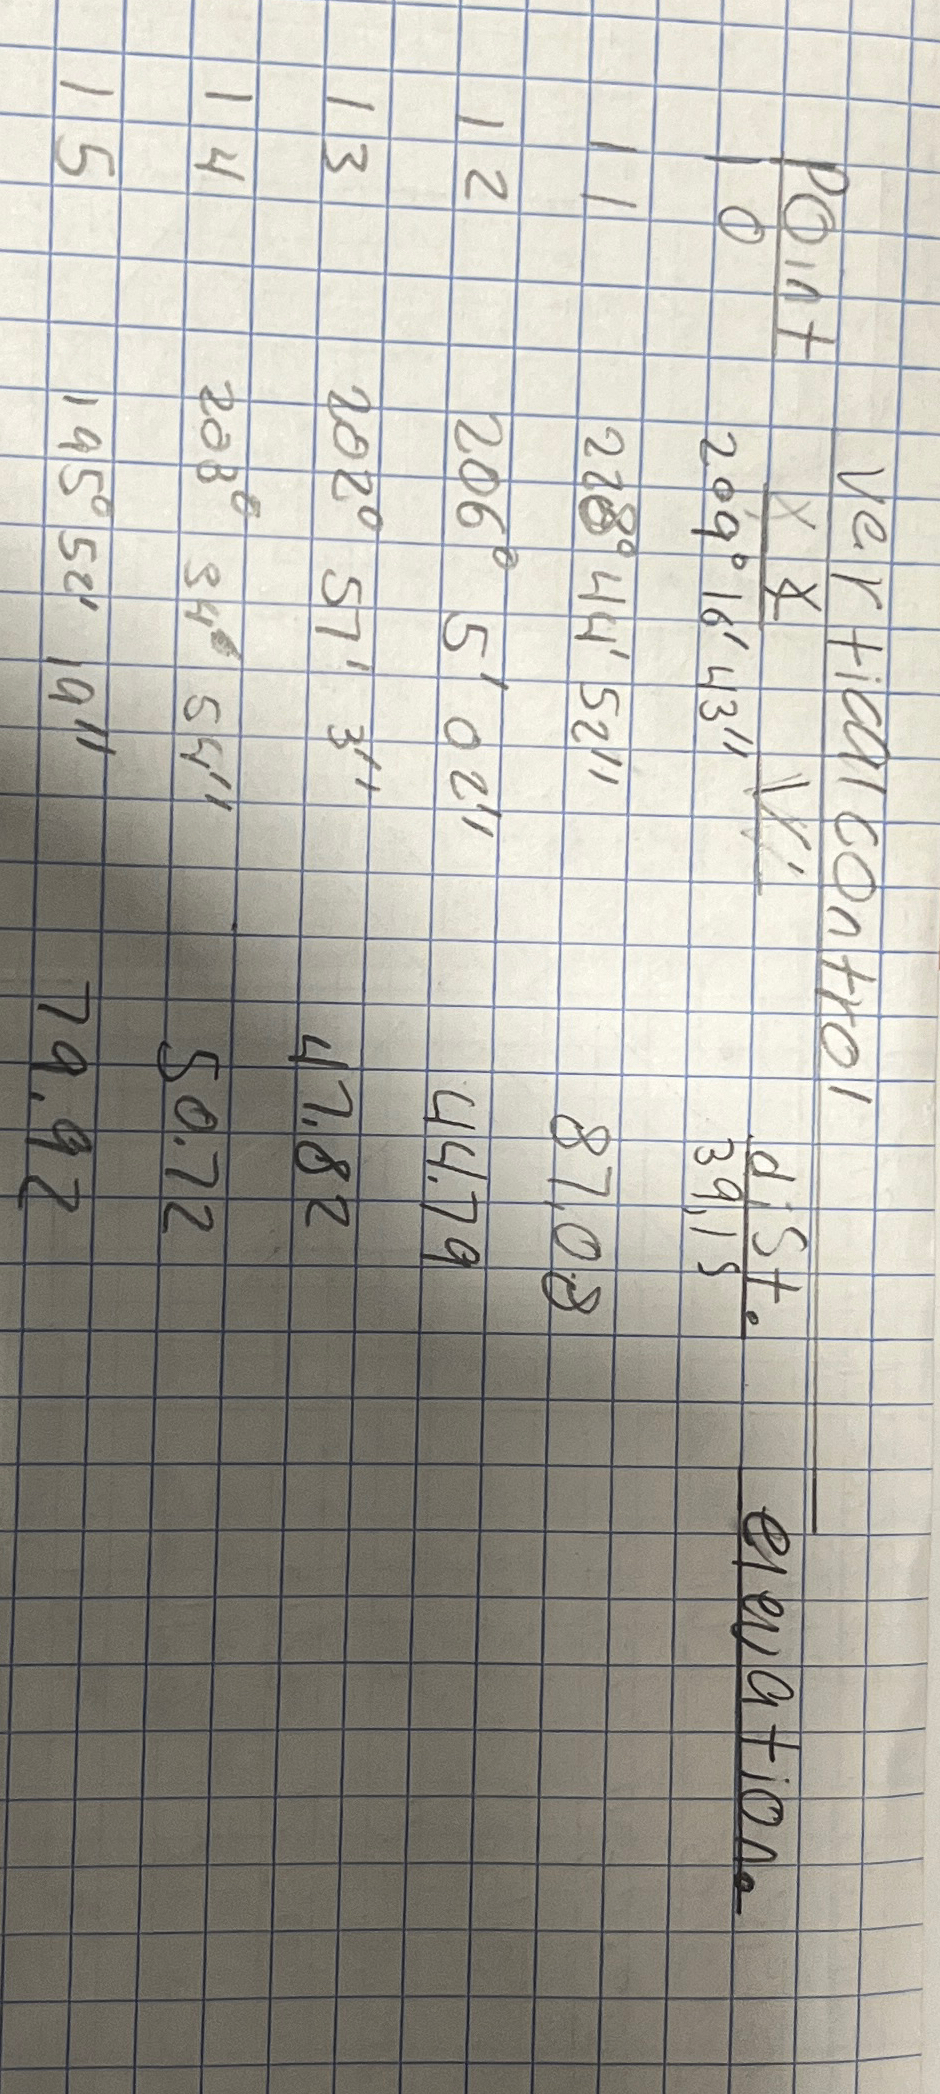 Vertical control
Point X X V' dist. elevation.
10 209° 16' 43" 39.15
11 228° 44' 52" 87.08
12 206° 5' 02" 44.79
13 202° 57' 3" 47.82
14 208° 34' 54" 50.72
15 195° 52' 19" 79.92